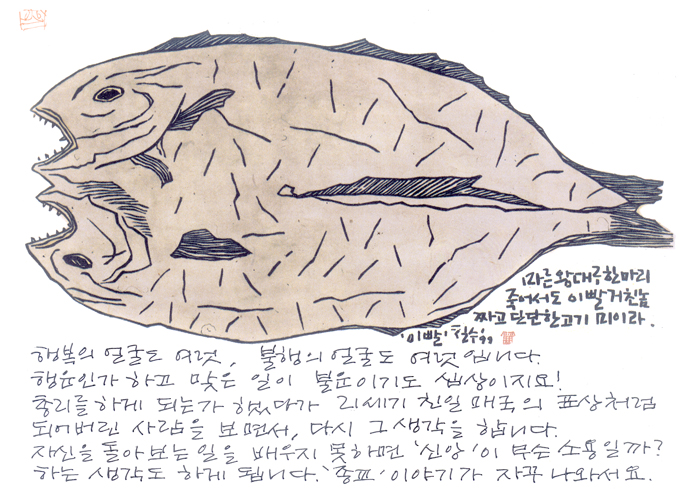 마른 왕대구 한마리
죽어서도 이빨 거친놈
짜고 단단한 고기 미이라.
'이빨' 철수 '99
행복의 얼굴도 여럿, 불행의 얼굴도 여럿입니다.
행운인가 하고 맞은 일이 불운이기도 세상이지요!
총리를 하게 되는가 했다가 21세기 친일 매국의 표상처럼
되어버린 사람을 보면서, 다시 그 생각을 합니다.
자신을 돌아보는 일을 배우지 못하면 '신앙'이 무슨 소용일까?
하는 생각도 하게 됩니다. '종교' 이야기가 자꾸 나와서요.